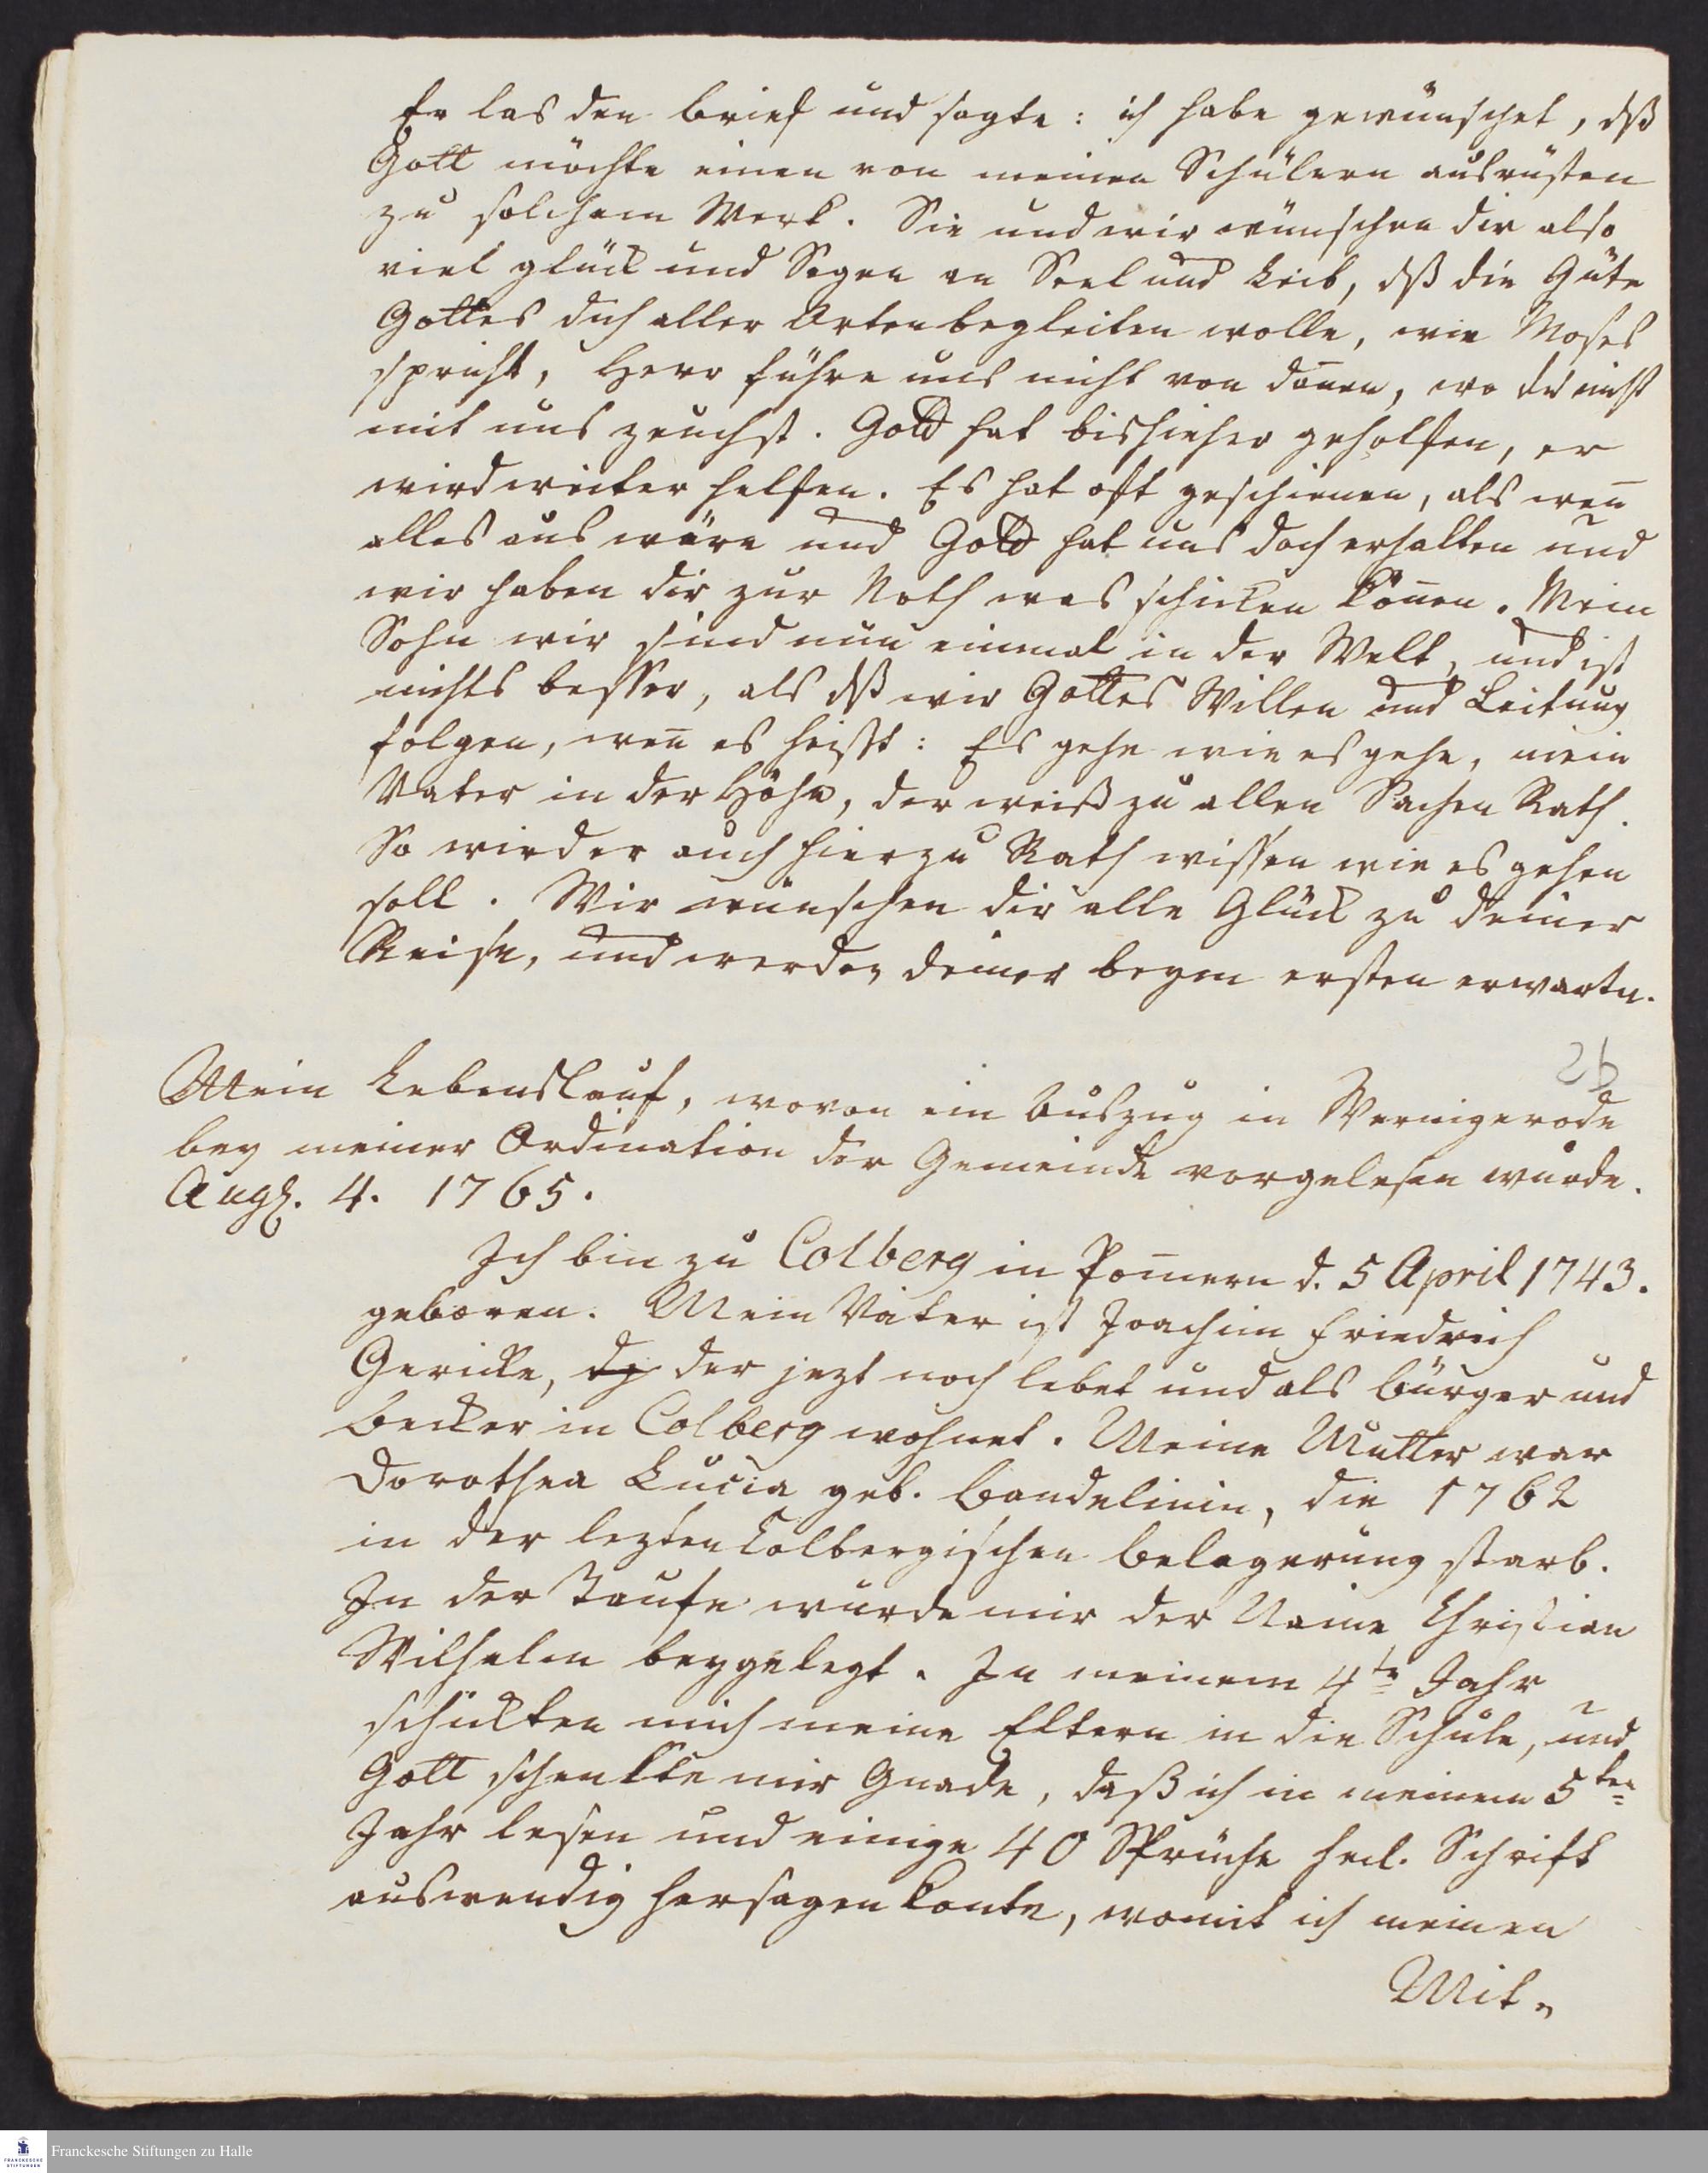 Er las den Brief und sagte: ich habe gewünschet, dß
Gott möchte einen von meinen Schülern ausrüsten
zu solchem Werk. Sie und wir wünschen dir also
viel glück und Segen an Seel und Leib, dß die Güte
Gottes dich aller Orten begleiten wolle, wie Moses
spricht, Herr führe uns nicht von dañen, wo du nicht
mit uns zeuchst. Gott hat bishieher geholfen, er
wird weiter helfen. Es hat oft geschienen, als weñ
alles aus wäre und Gott hat uns doch erhalten und
wir haben dir zur Noth was schicken köñen. Mein
Sohn wir sind nun einmal in der Welt, und ist
nichts besser, als dß wir Gottes Willen und Leitung
folgen, weñ es heißt: Es gehe wie es gehe, mein
Vater in der Höhe, der weiß zu allen Sachen Rath.
So wird er auch hierzu Rath wissen wie es gehen
soll. Wir wünschen dir alle Glück zu deiner
Reise, und werden deiner beym ersten erwarten.
2b
Mein Lebenslauf, wovon ein Auszug in Wernigerode
bey meiner Ordination der Gemeinde vorgelesen wurde.
Aug. 4. 1765.
Ich bin zu Colberg in Pom̄ern d. 5 April 1743.
geboren. Mein Vater ist Joachim Friedrich
Gericke, der jezt noch lebet und als Bürger und
Becker in Colberg wohnet. Meine Mutter war
Dorothea Lucia geb. Bandelinin, die 1762
in der lezten Colbergischen Belagerung starb.
In der Taufe wurde mir der Name Christian
Wilhelm beygelegt. In meinem 4te Jahr
schickten mich meine Eltern in die Schule, und
Gott schenkte mir Gnade, daß ich in meinem 5ten
Jahr lesen und einige 40 Sprüche heil. Schrift
auswendig hersagen konte, womit ich meinen
Mit-
Franckesche Stiftungen zu Halle
FRANCKESCHE
STIFTUNGEN